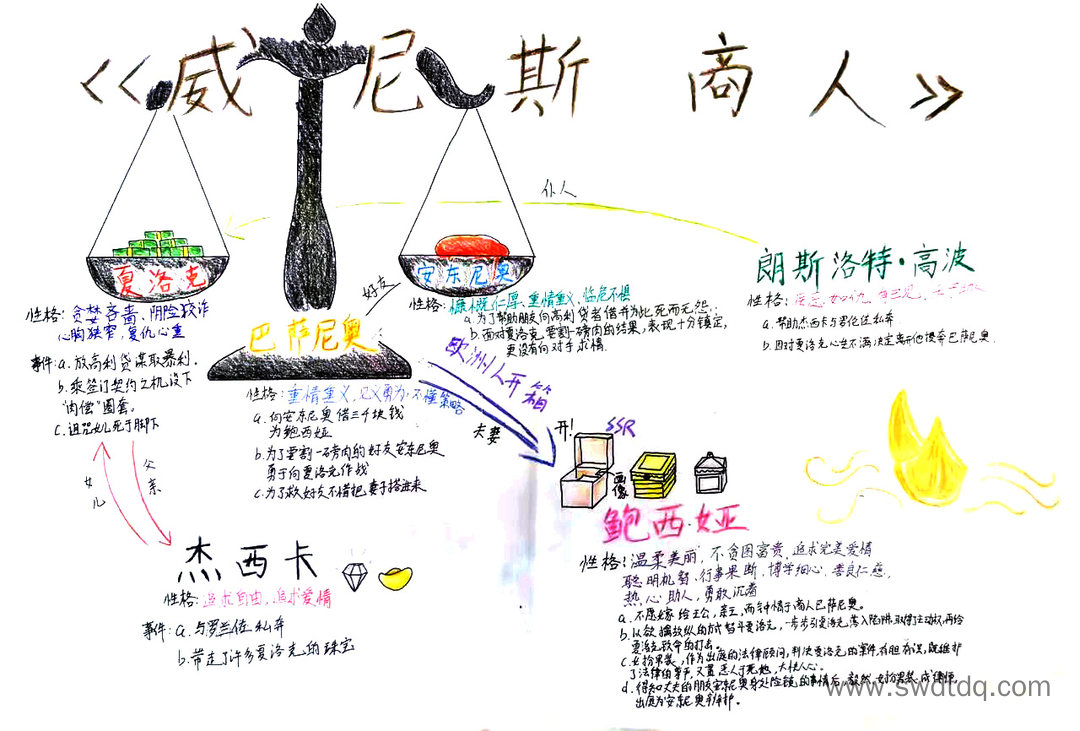 《威尼斯商人》
仆人
夏洛克
性格：贪婪吝啬，阴险狡诈
心胸狭窄，复仇心重
事件：a. 放高利贷谋取暴利.
b. 乘签订契约之机设下
"肉偿"圈套.
c. 诅咒女儿死于脚下
安东尼奥
性格：慷慨仁厚、重情重义，临危不惧
a. 为了帮助朋友向高利贷者借并为此死而无怨;
b. 面对夏洛克要割一磅肉的结果，表现十分镇定，
更没有向对手求情.
好友
朗斯洛特·高波
性格：
a. 帮助杰西卡与罗伦佐私奔
b. 因对夏洛克心生不满决定离开他投奔巴萨尼奥.
巴萨尼奥
性格：重情重义，见义勇为，不懂策略
a. 向安东尼奥借三千块钱
为鲍西娅
b. 为了要割一磅肉的好友安东尼奥
勇于向夏洛克作战
c. 为了救好友不惜把妻子搭进来
欧洲人开箱
夫妻
开!
SSR
画像
女儿
父亲
杰西卡
性格：追求自由，追求爱情
事件：a. 与罗兰佐私奔
b. 带走了许多夏洛克的珠宝
鲍西娅
性格：温柔美丽，不贪图富贵，追求完美爱情
聪明机智、行事果断，博学细心，善良仁慈，
热心助人，勇敢沉着
a. 不愿嫁给王公，亲王，而钟情于商人巴萨尼奥。
b. 以欲擒故纵的方式智斗夏洛克，一步步引夏洛克落入陷阱，取得主动权，再给
夏洛克致命的打击。
c. 女扮男装，作为出庭的法律顾问，判决夏洛克的案件，有胆有识，既维护
了法律的尊严，又置恶人于死地，大快人心。
d. 得知丈夫的朋友安东尼奥身处险境的事情后，毅然女扮男装，成律师
出庭为安东尼奥辩护。
www.swdtdq.com